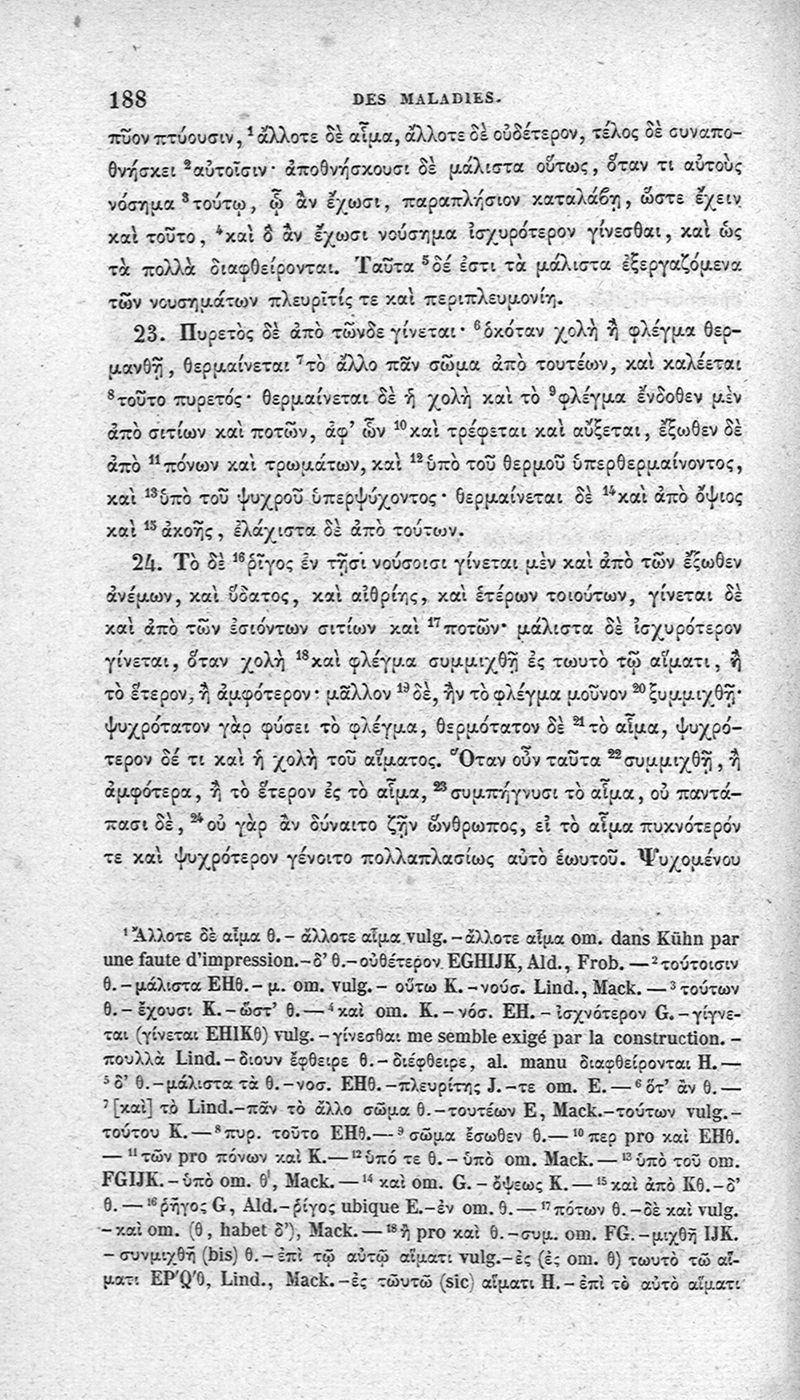 188 DES MALADIES.
πῦον πτύουσιν, ¹ἄλλοτε δὲ αἷμα, ἄλλοτε δὲ οὐδέτερον, τέλος δὲ συναπο-
θνήσκει ²αὐτοῖσιν· ἀποθνήσκουσι δὲ μάλιστα οὕτως, ὅταν τι αὐτοὺς
νόσημα ³τούτῳ, ᾧ ἂν ἔχωσι, παραπλήσιον καταλάβῃ, ὥστε ἔχειν
καὶ τοῦτο, ⁴καὶ ὃ ἂν ἔχωσι νούσημα ἰσχυρότερον γίνεσθαι, καὶ ὡς
τὰ πολλὰ διαφθείρονται. Ταῦτα ⁵δέ ἐστι τὰ μάλιστα ἐξεργαζόμενα
τῶν νουσημάτων πλευρῖτίς τε καὶ περιπλευμονίη.
23. Πυρετὸς δὲ ἀπὸ τῶνδε γίνεται· ⁶ὁκόταν χολὴ ἢ φλέγμα θερ-
μανθῇ, θερμαίνεται ⁷τὸ ἄλλο πᾶν σῶμα ἀπὸ τουτέων, καὶ καλέεται
⁸τοῦτο πυρετός· θερμαίνεται δὲ ἡ χολὴ καὶ τὸ ⁹φλέγμα ἔνδοθεν μὲν
ἀπὸ σιτίων καὶ ποτῶν, ἀφ’ ὧν ¹⁰καὶ τρέφεται καὶ αὔξεται, ἔξωθεν δὲ
ἀπὸ ¹¹πόνων καὶ τρωμάτων, καὶ ¹²ὑπὸ τοῦ θερμοῦ ὑπερθερμαίνοντος,
καὶ ¹³ὑπὸ τοῦ ψυχροῦ ὑπερψύχοντος· θερμαίνεται δὲ ¹⁴καὶ ἀπὸ ὄψιος
καὶ ¹⁵ἀκοῆς, ἐλάχιστα δὲ ἀπὸ τούτων.
24. Τὸ δὲ ¹⁶ῥῖγος ἐν τῇσι νούσοισι γίνεται μὲν καὶ ἀπὸ τῶν ἔξωθεν
ἀνέμων, καὶ ὕδατος, καὶ αἰθρίης, καὶ ἑτέρων τοιούτων, γίνεται δὲ
καὶ ἀπὸ τῶν ἐσιόντων σιτίων καὶ ¹⁷ποτῶν· μάλιστα δὲ ἰσχυρότερον
γίνεται, ὅταν χολὴ ¹⁸καὶ φλέγμα συμμιχθῇ ἐς τωυτὸ τῷ αἵματι, ἢ
τὸ ἕτερον, ἢ ἀμφότερον· μᾶλλον ¹⁹δὲ, ἢν τὸ φλέγμα μοῦνον ²⁰ξυμμιχθῇ·
ψυχρότατον γὰρ φύσει τὸ φλέγμα, θερμότατον δὲ ²¹τὸ αἷμα, ψυχρό-
τερον δέ τι καὶ ἡ χολὴ τοῦ αἵματος. Ὅταν οὖν ταῦτα ²²συμμιχθῇ, ἢ
ἀμφότερα, ἢ τὸ ἕτερον ἐς τὸ αἷμα, ²³συμπήγνυσι τὸ αἷμα, οὐ παντά-
πασι δὲ, ²⁴οὐ γὰρ ἂν δύναιτο ζῆν ὥνθρωπος, εἰ τὸ αἷμα πυκνότερόν
τε καὶ ψυχρότερον γένοιτο πολλαπλασίως αὐτὸ ἑωυτοῦ. Ψυχομένου
¹ Ἄλλοτε δὲ αἷμα θ. – ἄλλοτε αἷμα vulg. – ἄλλοτε αἷμα om. dans Kühn par
une faute d’impression. – δ’ θ. – οὐθέτερον EGHIJK, Ald., Frob. — ² τούτοισιν
θ. – μάλιστα EHθ. – μ. om. vulg. – οὕτω K. – νούσ. Lind., Mack. — ³ τούτων
θ. – ἔχουσι K. – ὥστ’ θ. — ⁴ καὶ om. K. – νόσ. EH. – ἰσχνότερον G. – γίγνε-
ται (γίνεται EHIKθ) vulg. – γίνεσθαι me semble exigé par la construction. –
πουλλὰ Lind. – διουν ἔφθειρε θ. – διέφθειρε, al. manu διαφθείρονται H. —
⁵ δ’ θ. – μάλιστα τὰ θ. – νοσ. EHθ. – πλευρίτης J. – τε om. E. — ⁶ ὅτ’ ἂν θ. —
⁷ [καὶ] τὸ Lind. – πᾶν τὸ ἄλλο σῶμα θ. – τουτέων E, Mack. – τούτων vulg. –
τούτου K. — ⁸ πυρ. τοῦτο EHθ. — ⁹ σῶμα ἔσωθεν θ. — ¹⁰ περ pro καὶ EHθ.
— ¹¹ τῶν pro πόνων καὶ K. — ¹² ὑπό τε θ. – ὑπὸ om. Mack. — ¹³ ὑπὸ τοῦ om.
FGIJK. – ὑπὸ om. θ, Mack. — ¹⁴ καὶ om. G. – ὄψεως K. — ¹⁵ καὶ ἀπὸ Kθ. – δ’
θ. — ¹⁶ ῥῆγος G, Ald. – ῥίγος ubique E. – ἐν om. θ. — ¹⁷ πότων θ. – δὲ καὶ vulg.
– καὶ om. (θ, habet δ’), Mack. — ¹⁸ ἢ pro καὶ θ. – συμ. om. FG. – μιχθῇ IJK.
– συνμιχθῆ (bis) θ. – ἐπὶ τῷ αὐτῷ αἵματι vulg. – ἐς (ἐς om. θ) τωυτὸ τῶ αἵ-
ματι EP′Q′θ, Lind., Mack. – ἐς τῶυτῶ (sic) αἵματι H. – ἐπὶ τὸ αὐτὸ αἵματι